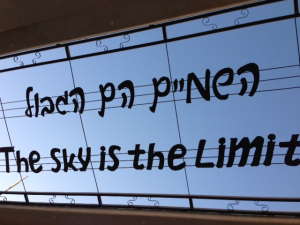 השמיים הם הגבול
The Sky is the Limit